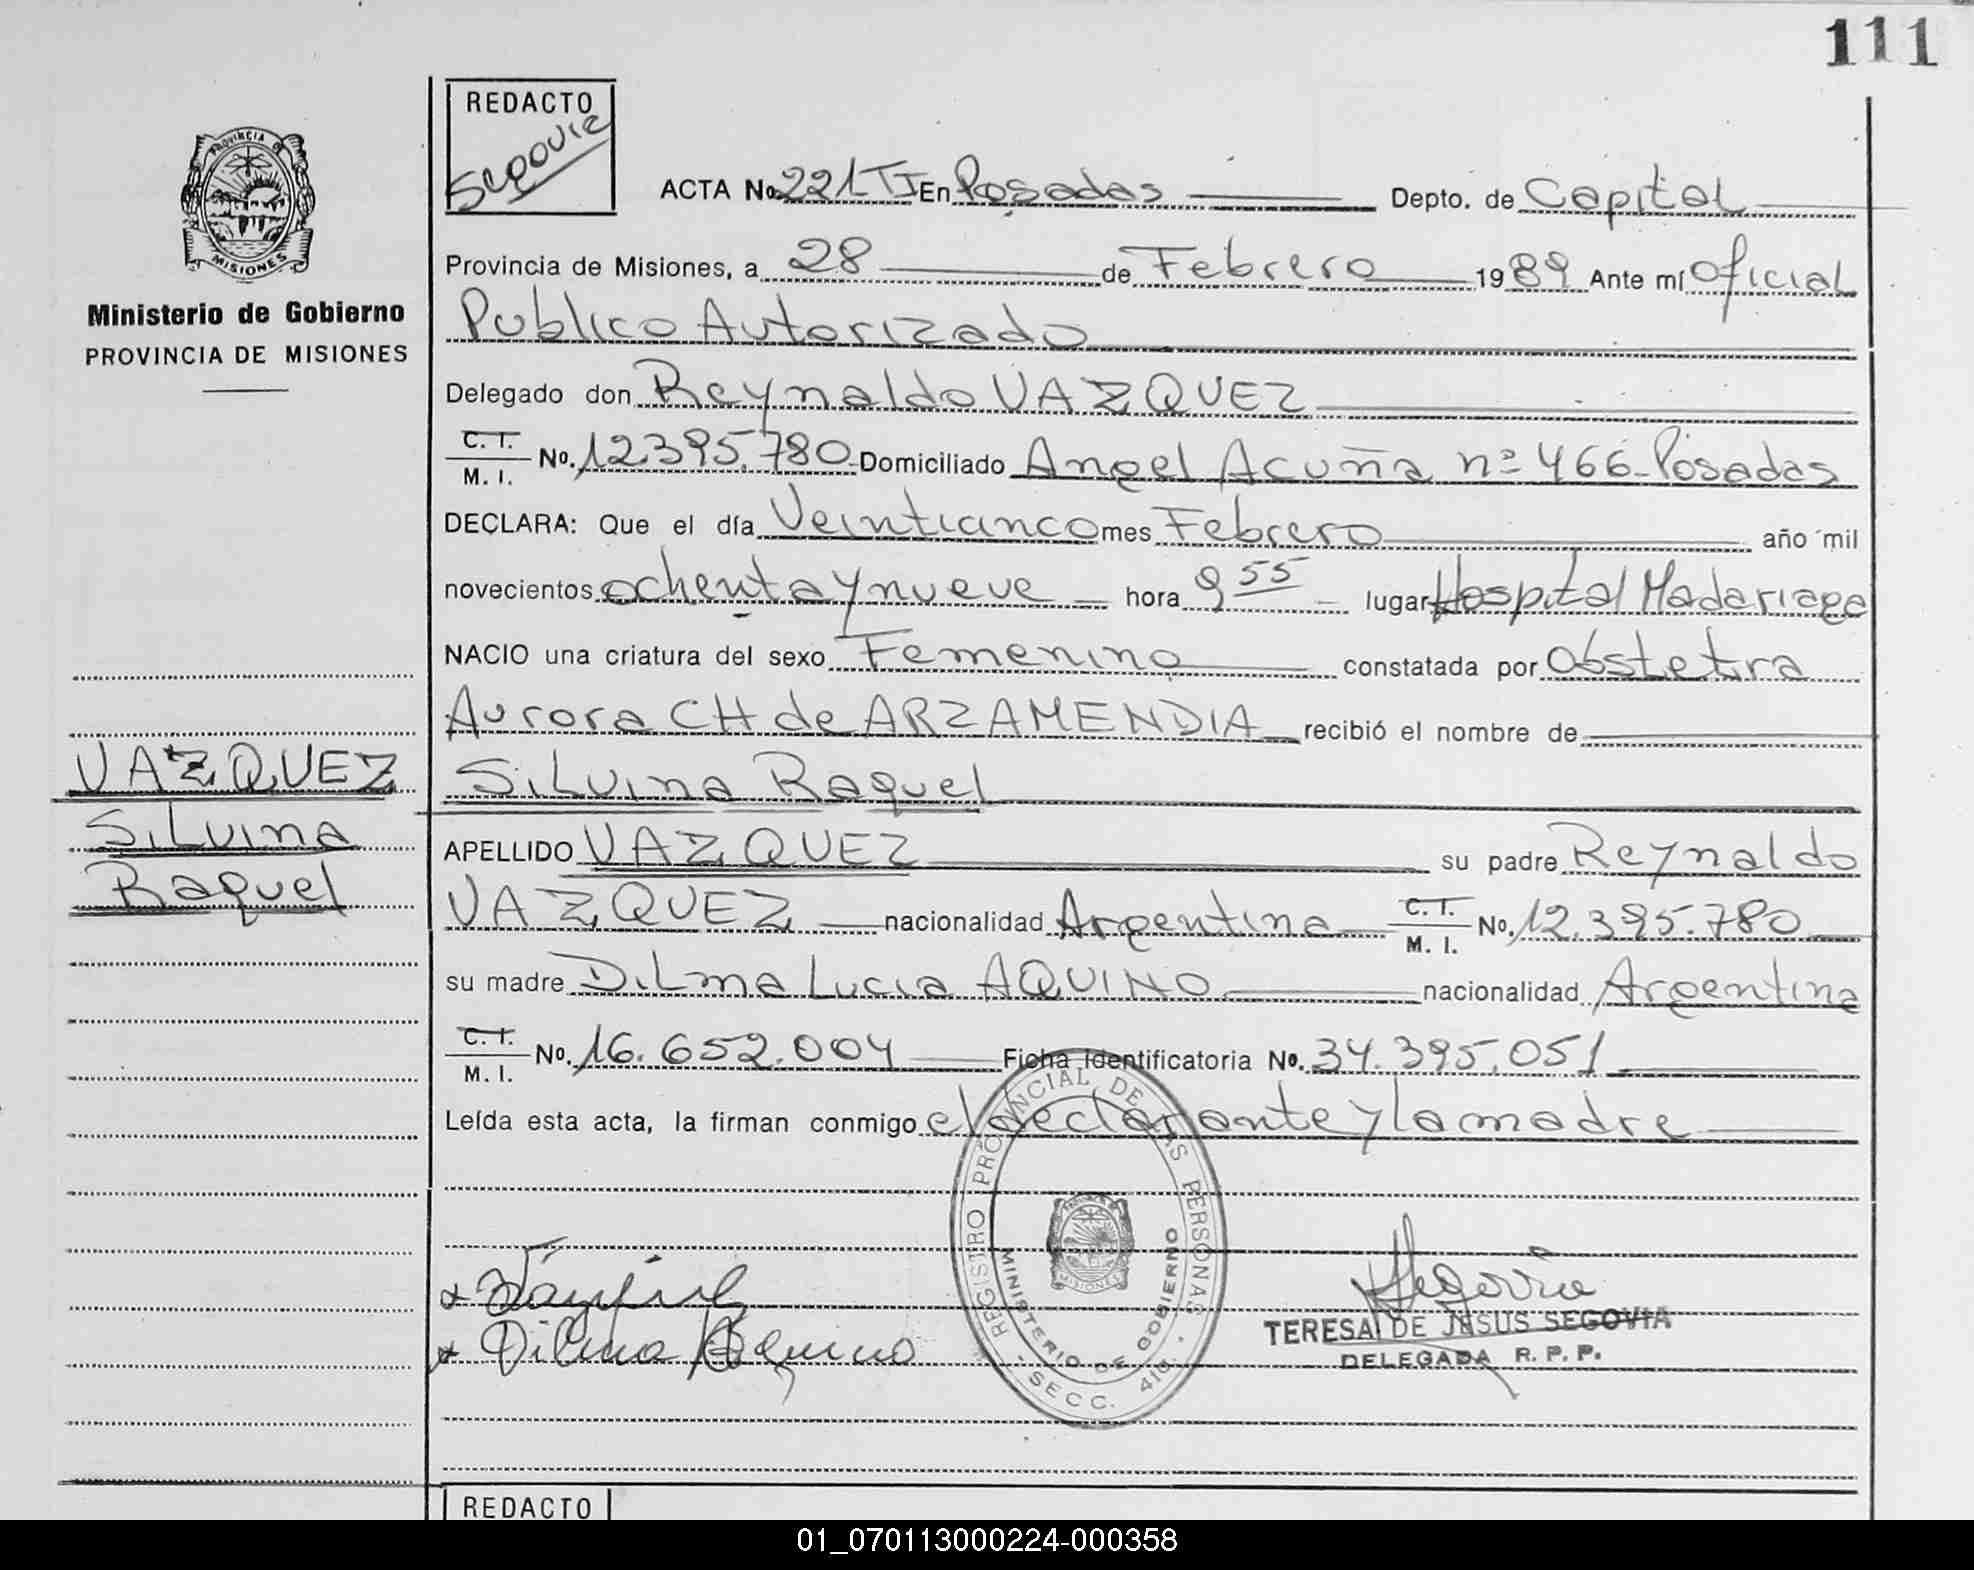 111
REDACTO
Segovia
ACTA No. 221 TI En Posadas Depto. de Capital
PROVINCIA DE
MISIONES
Ministerio de Gobierno
PROVINCIA DE MISIONES
Provincia de Misiones, a 28 de Febrero 1989 Ante mí Oficial
Publico Autorizado
Delegado don Reynaldo VAZQUEZ
C. I. M. I. No. 12.395.780 Domiciliado Angel Acuña nº 466 - Posadas
DECLARA: Que el día Veinticinco mes Febrero año mil
novecientos ochenta y nueve hora 9 55 lugar Hospital Madariaga
NACIO una criatura del sexo Femenino constatada por Obstetra
Aurora CH de ARZAMENDIA recibió el nombre de
Silvina Raquel
VAZQUEZ
Silvina
Raquel
APELLIDO VAZQUEZ su padre Reynaldo
VAZQUEZ nacionalidad Argentina C. I. M. I. No. 12.395.780
su madre Dilma Lucia AQUINO nacionalidad Argentina
C. I. M. I. No. 16.652.004 Ficha identificatoria No. 34.395.051
Leída esta acta, la firman conmigo el declarante y la madre
REGISTRO PROVINCIAL DE LAS PERSONAS
MINISTERIO DE GOBIERNO
MISIONES
SECC. 410
x
x Dilma Aquino
Segovia
TERESA DE JESUS SEGOVIA
DELEGADA R. P. P.
REDACTO
01_070113000224-000358